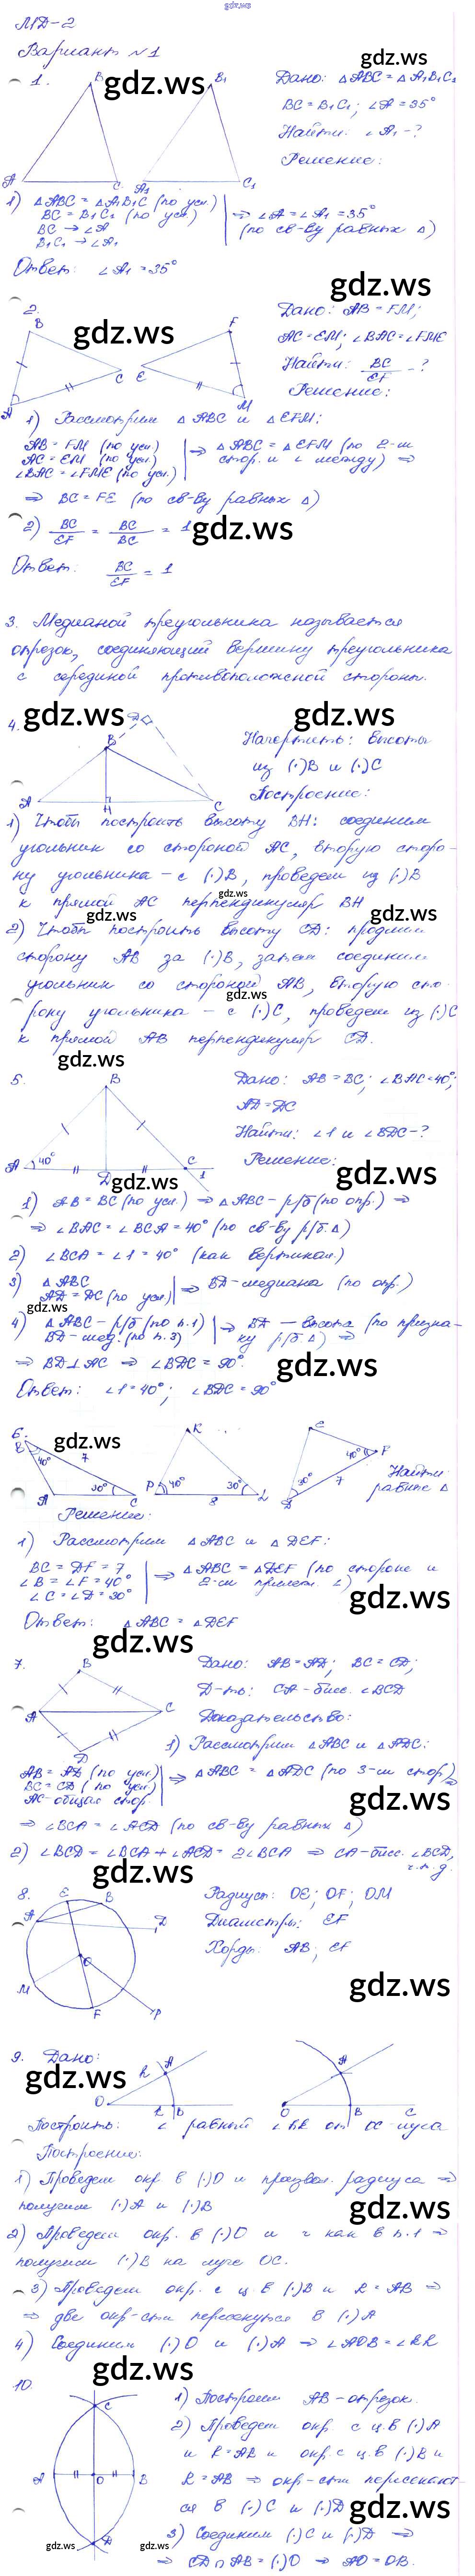 gdz.ws
МД-2
Вариант №1
gdz.ws
1.
B
B₁
A
C
A₁
C₁
Дано: △ABC = △A₁B₁C₁
BC = B₁C₁; ∠A = 35°
Найти: ∠A₁ - ?
Решение:
1) △ABC = △A₁B₁C (по усл.)
BC = B₁C₁ (по усл)
BC → ∠A
B₁C₁ → ∠A₁
⇒ ∠A = ∠A₁ = 35°
(по св-ву равных △)
Ответ: ∠A₁ = 35°
gdz.ws
2.
B
F
C
E
A
M
Дано: AB = FM;
AC = EM; ∠BAC = ∠FME
Найти: BC/EF - ?
Решение:
1) Рассмотрим △ABC и △EFM:
AB = FM (по усл.)
AC = EM (по усл.)
∠BAC = ∠FME (по усл.)
⇒ △ABC = △EFM (по 2-м
стор. и ∠ между) ⇒
⇒ BC = FE (по св-ву равных △)
2) BC/EF = BC/BC = 1
gdz.ws
Ответ: BC/EF = 1
3. Медианой треугольника называется
отрезок, соединяющий вершину треугольника
с серединой противоположной стороны.
4.
gdz.ws
D
gdz.ws
B
A
H
C
Начертить: высоты
из (·)B и (·)C
Построение:
1) Чтобы построить высоту BH: соединим
угольник со стороной AC, вторую сторо-
ну угольника - с (·)B, проведем из (·)B
к прямой AC перпендикуляр BH
gdz.ws
gdz.ws
gdz.ws
2) Чтобы построить высоту CD: продлим
сторону AB за (·)B, затем соединим
угольник со стороной AB, вторую сто-
gdz.ws
рону угольника - с (·)C, проведем из (·)C
к прямой AB перпендикуляр CD.
gdz.ws
5.
B
A
40°
D
C
1
Дано: AB = BC; ∠BAC = 40°;
AD = DC
Найти: ∠1 и ∠BDC - ?
Решение:
gdz.ws
gdz.ws
1) AB = BC (по усл.) ⇒ △ABC - р/б (по опр.) ⇒
⇒ ∠BAC = ∠BCA = 40° (по св-ву р/б △)
2) ∠BCA = ∠1 = 40° (как вертикал.)
3) △ABC
AD = DC (по усл)
⇒ BD - медиана (по опр.)
gdz.ws
4) △ABC - р/б (по п.1)
BD - мед. (по п.3)
⇒ BD - высота (по призна-
ку р/б △) ⇒
⇒ BD ⊥ AC ⇒ ∠BDC = 90°.
gdz.ws
Ответ: ∠1 = 40°; ∠BDC = 90°
6.
gdz.ws
B
40°
7
A
30°
C
K
P
40°
30°
8
L
E
40°
F
30°
7
D
Найти:
равные △
Решение:
1) Рассмотрим △ABC и △DEF:
BC = DF = 7
∠B = ∠F = 40°
∠C = ∠D = 30°
⇒ △ABC = △DEF (по стороне и
2-м прилеж. ∠)
gdz.ws
Ответ: △ABC = △DEF
gdz.ws
7.
B
A
C
D
Дано: AB = AD; BC = CD;
Д-ть: CA - бисс. ∠BCD
Доказательство:
1) Рассмотрим △ABC и △ADC:
AB = AD (по усл)
BC = CD (по усл)
AC - общая стор.
⇒ △ABC = △ADC (по 3-м стор) ⇒
gdz.ws
⇒ ∠BCA = ∠ACD (по св-ву равных △)
2) ∠BCD = ∠BCA + ∠ACD = 2∠BCA ⇒ CA - бисс. ∠BCD,
ч.т.д.
8.
E
B
A
D
O
M
F
P
Радиусы: OE; OF; OM
Диаметры: EF
Хорды: AB; EF
gdz.ws
9. Дано:
gdz.ws
h
A
O
k
B
A
O
B
C
Построить: ∠ равный ∠hk от OC-луча
Построение:
1) Проведем окр. в (·)O и произвол. радиуса ⇒
получим (·)A и (·)B
gdz.ws
2) Проведем окр. в (·)O и r как в п.1 ⇒
получим (·)B на луче OC.
3) Проведем окр. с ц. в (·)B и R = AB ⇒
⇒ две окр-сти пересекутся в (·)A
4) Соединим (·)O и (·)A ⇒ ∠AOB = ∠hk
gdz.ws
10.
C
A
O
B
D
1) Построим AB - отрезок.
2) Проведем окр. с ц. в (·)A
и R = AB и окр. с ц. в (·)B и
R = AB ⇒ окр-сти пересекают-
ся в (·)C и (·)D
gdz.ws
3) Соединим (·)C и (·)D ⇒
⇒ CD ∩ AB = (·)O ⇒ AO = OB.
gdz.ws
gdz.ws
gdz.ws